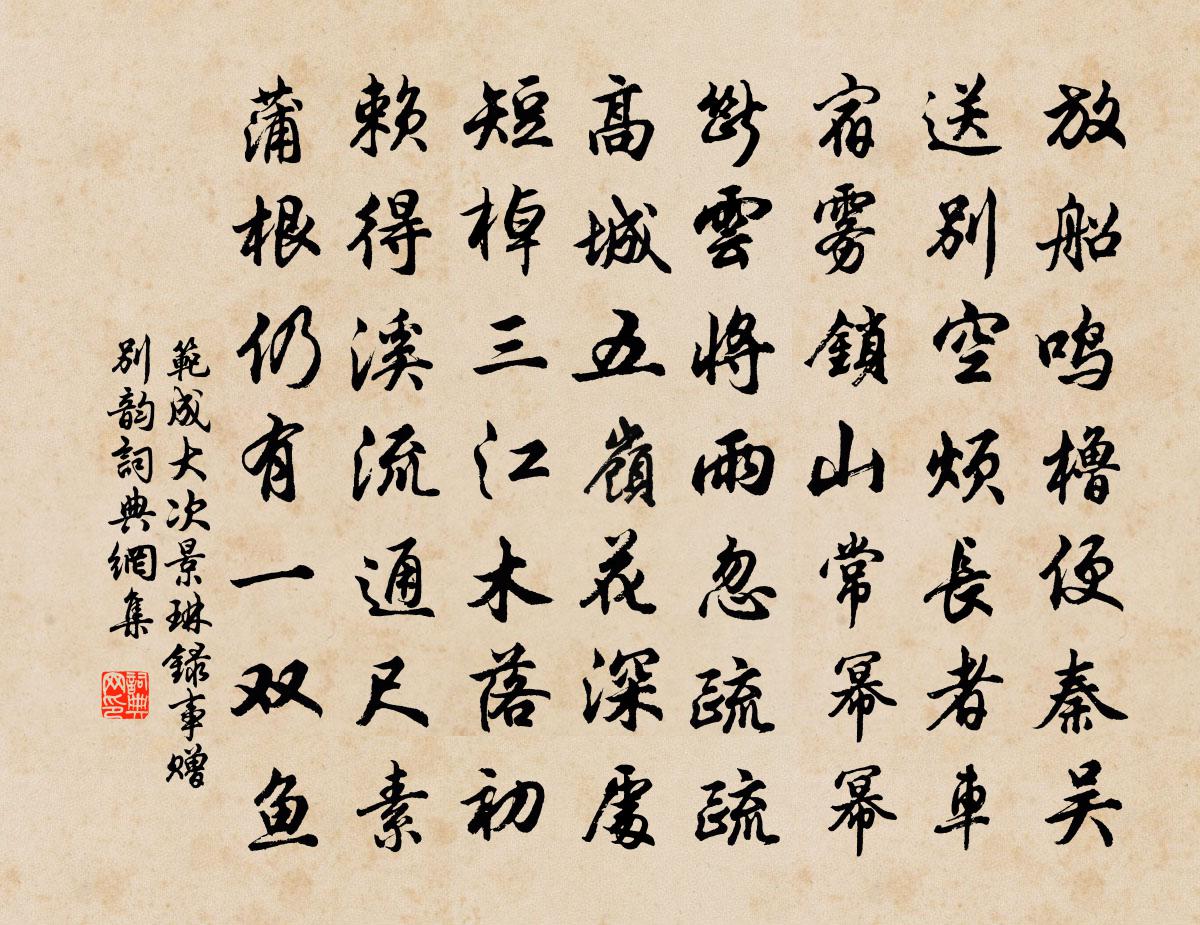 放船鸣橹便秦吴
送别空烦長者車
宿雾鎖山常幂幂
断雲将雨忽疏疏
高城五嶺花深處
短棹三江木落初
赖得溪流通尺素
蒲根仍有一双鱼
範成大次景琳録事赠
别韵詞典網集
詞典网印